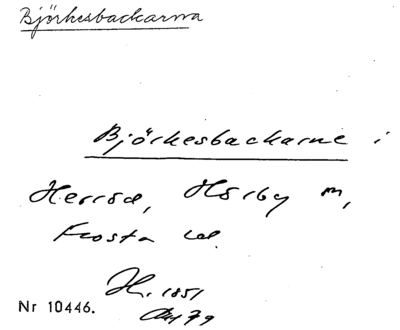 Björkesbackarna
Björkesbackarne i
Herröd, Hörby sn,
Frosta hd.
H. 1851
Akt 79
Nr 10446.